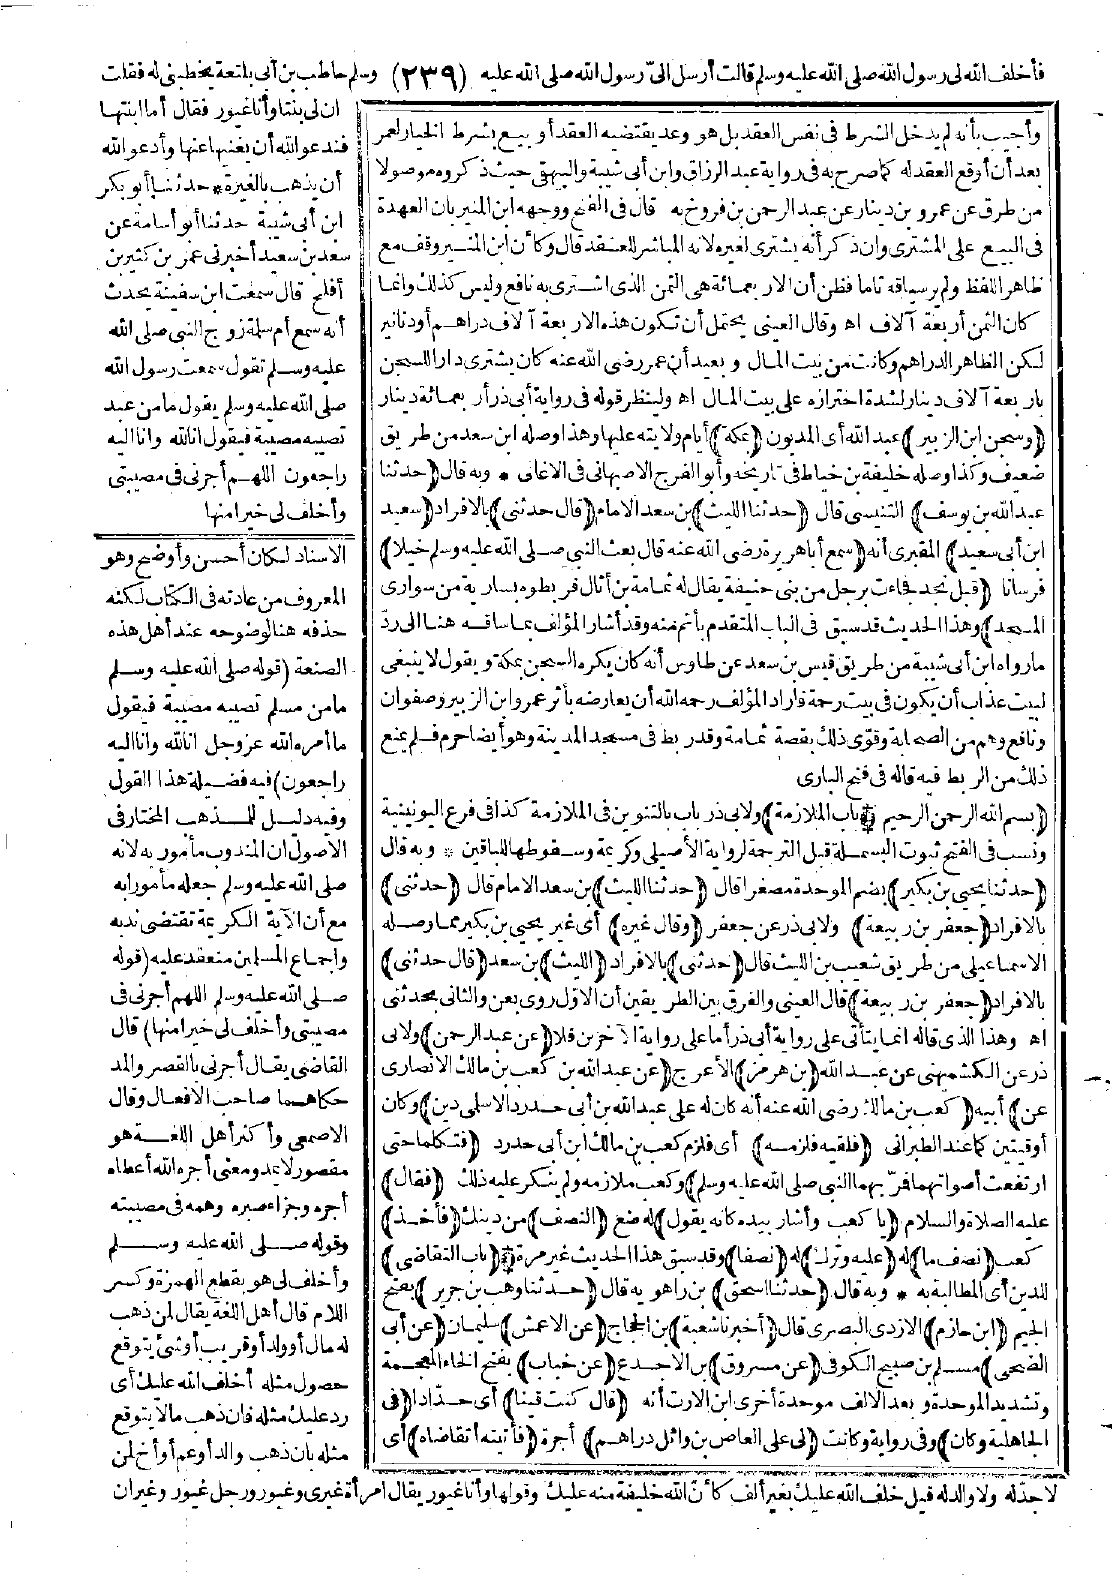 فأخلف الله لى رسول الله صلى الله عليه وسلم قالت أرسل الىّ رسول الله صلى الله عليه (٢٣٩) وسلم حاطب بن أبى بلتعة يخطبنى له فقلت
وأجيب بأنه لم يدخل الشرط فى نفس العقد بل هو وعد يقتضيه العقد أو بيع بشرط الخيار لعمر
بعد أن أوقع العقد له كما صرح به فى رواية عبد الرزاق وابن أبى شيبة والبيهقى حيث ذكروه موصولا
من طرق عن عمرو بن دينار عن عبد الرحمن بن فروخ به قال فى الفتح ووجهه ابن المنير بان العهدة
فى البيع على المشترى وان ذكر أنه يشترى لغيره لانه المباشر للعقد قال وكأن ابن المنير وقف مع
ظاهر اللفظ ولم ير سياقه تاما فظن أن الاربعمائة هى الثمن الذى اشترى به نافع وليس كذلك وانما
كان الثمن أربعة آلاف اه وقال العينى يحتمل أن تكون هذه الاربعة آلاف دراهم أو دنانير
لكن الظاهر الدراهم وكانت من بيت المال وبعيد أن عمر رضى الله عنه كان يشترى دار السجن
باربعة آلاف دينار لشدة احترازه على بيت المال اه ولينظر قوله فى رواية أبى ذر أربعمائة دينار
(وسجن ابن الزبير) عبد الله أى المديون (بمكة) أيام ولايته عليها وهذا وصله ابن سعد من طريق
ضعيف وكذا وصله خليفة بن خياط فى تاريخه وأبو الفرج الاصبهانى فى الاغانى * وبه قال (حدثنا
عبد الله بن يوسف) التنيسى قال (حدثنا الليث) بن سعد الامام (قال حدثنى) بالافراد (سعيد
ابن أبى سعيد) المقبرى أنه (سمع أبا هريرة رضى الله عنه قال بعث النبى صلى الله عليه وسلم خيلا)
فرسانا (قبل نجد فجاءت برجل من بنى حنيفة يقال له ثمامة بن أثال فربطوه بسارية من سوارى
المسجد) وهذا الحديث قد سبق فى الباب المتقدم بأتم منه وقد أشار المؤلف بما ساقه هنا الى ردّ
ما رواه ابن أبى شيبة من طريق قيس بن سعد عن طاوس أنه كان يكره السجن بمكة ويقول لا ينبغى
لبيت عذاب أن يكون فى بيت رحمة فاراد المؤلف رحمه الله أن يعارضه بأثر عمر وابن الزبير وصفوان
ونافع وهم من الصحابة وقوى ذلك بقصة ثمامة وقد ربط فى مسجد المدينة وهو أيضا حرم فلم يمنع
ذلك من الربط فيه قاله فى فتح البارى
(بسم الله الرحمن الرحيم * باب الملازمة) ولابى ذر باب بالتنوين فى الملازمة كذا فى فرع اليونينية
ونسب فى الفتح ثبوت البسملة قبل الترجمة لرواية الأصيلى وكريمة وسقوطها للباقين * وبه قال
(حدثنا يحيى بن بكير) بضم الموحدة مصغرا قال (حدثنا الليث) بن سعد الامام قال (حدثنى)
بالافراد (جعفر بن ربيعة) ولابى ذر عن جعفر (وقال غيره) أى غير يحيى بن بكير مما وصله
الاسماعيلى من طريق شعيب بن الليث قال (حدثنى) بالافراد (الليث) بن سعد (قال حدثنى)
بالافراد (جعفر بن ربيعة) قال العينى والفرق بين الطريقين أن الاوّل روى بعن والثانى بحدثنى
اه وهذا الذى قاله انما يتأتى على رواية أبى ذر أما على رواية الآخرين فلا (عن عبد الرحمن) ولابى
ذر عن الكشميهنى عن عبد الله (بن هرمز) الأعرج (عن عبد الله بن كعب بن مالك الانصارى
عن) أبيه (كعب بن مالك رضى الله عنه أنه كان له على عبد الله بن أبى حدرد الاسلمى دين) وكان
أوقيتين كما عند الطبرانى (فلقيه فلزمه) أى فلزم كعب بن مالك ابن أبى حدرد (فتكلما حتى
ارتفعت أصواتهما فمرّ بهما النبى صلى الله عليه وسلم) وكعب ملازمه ولم ينكر عليه ذلك (فقال)
عليه الصلاة والسلام (يا كعب وأشار بيده كانه يقول) له ضع (النصف) من دينك (فأخذ)
كعب (نصف ما) له (عليه وترك) له (نصفا) وقد سبق هذا الحديث غير مرة * (باب التقاضى)
للدين أى المطالبة به * وبه قال (حدثنا اسحق) بن راهويه قال (حدثنا وهب بن جرير) بفتح
الجيم (ابن حازم) الازدى البصرى قال (أخبرنا شعبة) بن الحجاج (عن الاعمش) سليمان (عن أبى
الضحى) مسلم بن صبيح الكوفى (عن مسروق) بن الاجدع (عن خباب) بفتح الخاء المعجمة
وتشديد الموحدة وبعد الالف موحدة أخرى ابن الارت أنه (قال كنت قينا) أى حدّادا (فى
الجاهلية وكان) وفى رواية وكانت (لى على العاص بن وائل دراهم) أجرة (فأتيته أتقاضاه) أى
ان لى بنتا وأنا غيور فقال أما ابنتها
فندعو الله أن يغنيها عنها وأدعو الله
أن يذهب بالغيرة * حدثنا أبو بكر
ابن أبى شيبة حدثنا أبو أسامة عن
سعد بن سعيد أخبرنى عمر بن كثير بن
أفلح قال سمعت ابن سفينة يحدث
أنه سمع أم سلمة زوج النبى صلى الله
عليه وسلم تقول سمعت رسول الله
صلى الله عليه وسلم يقول ما من عبد
تصيبه مصيبة فيقول انا لله وانا اليه
راجعون اللهم أجرنى فى مصيبتى
وأخلف لى خيرا منها
الاسناد لكان أحسن وأوضح وهو
المعروف من عادته فى الكتاب لكنه
حذفه هنا لوضوحه عند أهل هذه
الصنعة (قوله صلى الله عليه وسلم
ما من مسلم تصيبه مصيبة فيقول
ما أمره الله عز وجل انا لله وانا اليه
راجعون) فيه فضيلة هذا القول
وفيه دليل للمذهب المختار فى
الأصول ان المندوب مأمور به لانه
صلى الله عليه وسلم جعله مأمورا به
مع أن الآية الكريمة تقتضى ندبه
واجماع المسلمين منعقد عليه (قوله
صلى الله عليه وسلم اللهم أجرنى فى
مصيبتى وأخلف لى خيرا منها) قال
القاضى يقال أجرنى بالقصر والمد
حكاهما صاحب الافعال وقال
الاصمعى وأكثر أهل اللغة هو
مقصور لا يمد ومعنى أجره الله أعطاه
أجره وجزاء صبره وهمه فى مصيبته
وقوله صلى الله عليه وسلم
وأخلف لى هو بقطع الهمزة وكسر
اللام قال أهل اللغة يقال لمن ذهب
له مال أو ولد أو قريب أو شئ يتوقع
حصول مثله أخلف الله عليك أى
رد عليك مثله فان ذهب ما لا يتوقع
مثله بان ذهب والد أو عم أو أخ لمن
لا جدّ له ولا والد له قيل خلف الله عليك بغير ألف كأن الله خليفة منه عليك وقولها وأنا غيور يقال امرأة غيرى وغيور ورجل غيور وغيران